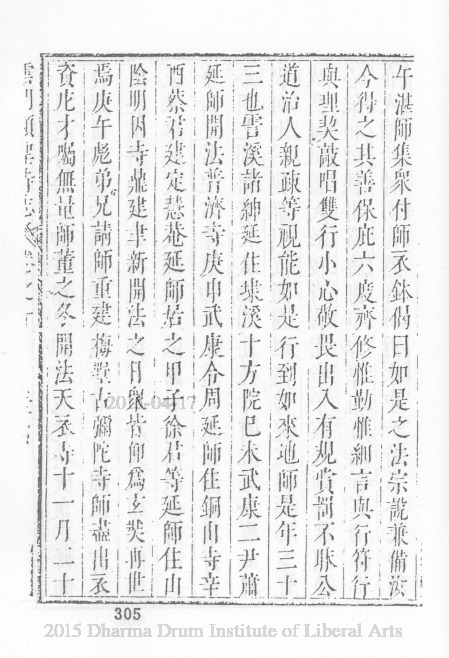 午湛師集眾付師衣鉢偈曰如是之法宗說兼備汝
今得之其善保庇六度齊修惟勤惟細言與行符行
與理契敲唱雙行小心敬畏出入有規賞罰不昧公
道治人親疎等視能如是行到如來地師是年三十
三也霅溪諸紳延住埭溪十方院巳未武康二尹蕭
延師開法普濟寺庚申武康令周延師住銅山寺辛
酉蔡君建定慧菴延師居之甲子徐君等延師住山
陰明因寺鼎建聿新開法之日眾皆仰為玄奘再世
焉庚午彪弟兄請師重建梅墅古彌陀寺師盡出衣
資庀才囑無量師董之冬開法天衣寺十一月二十
雲門顯聖寺志
2015-04-17
305
2015 Dharma Drum Institute of Liberal Arts